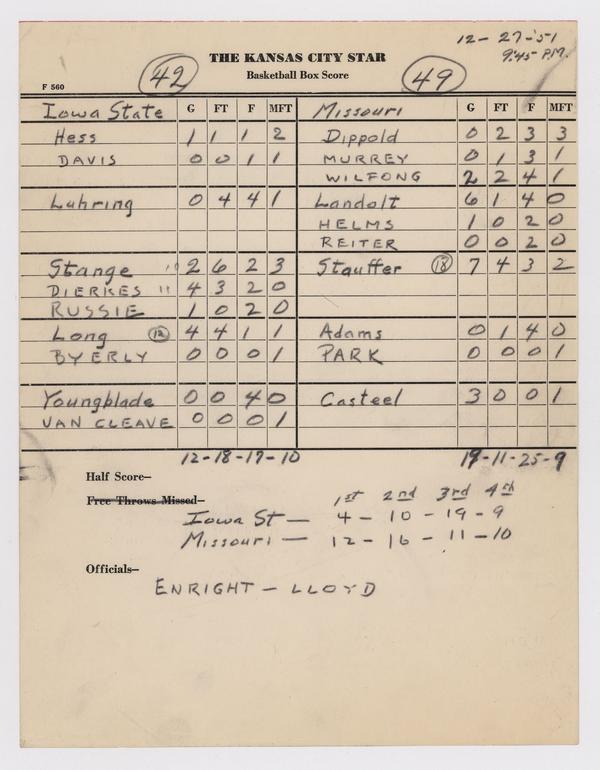 12-27-'51
9:45 P.M.
THE KANSAS CITY STAR
Basketball Box Score
42 49
F 560
Iowa State G FT F MFT Missouri G FT F MFT
Hess 1 1 1 2 Dippold 0 2 3 3
DAVIS 0 0 1 1 MURREY 0 1 3 1
WILFONG 2 2 4 1
Luhring 0 4 4 1 Landolt 6 1 4 0
HELMS 1 0 2 0
REITER 0 0 2 0
Stange 10 2 6 2 3 Stauffer 18 7 4 3 2
DIERKES 11 4 3 2 0
RUSSIE 1 0 2 0
Long 12 4 4 1 1 Adams 0 1 4 0
BYERLY 0 0 0 1 PARK 0 0 0 1
Youngblade 0 0 4 0 Casteel 3 0 0 1
VAN CLEAVE 0 0 0 1
12-18-17-10 19-11-25-9
Half Score—
Free Throws Missed— 1st 2nd 3rd 4th
Iowa St — 4 - 10 - 19 - 9
Missouri — 12 - 16 - 11 - 10
Officials—
ENRIGHT — LLOYD